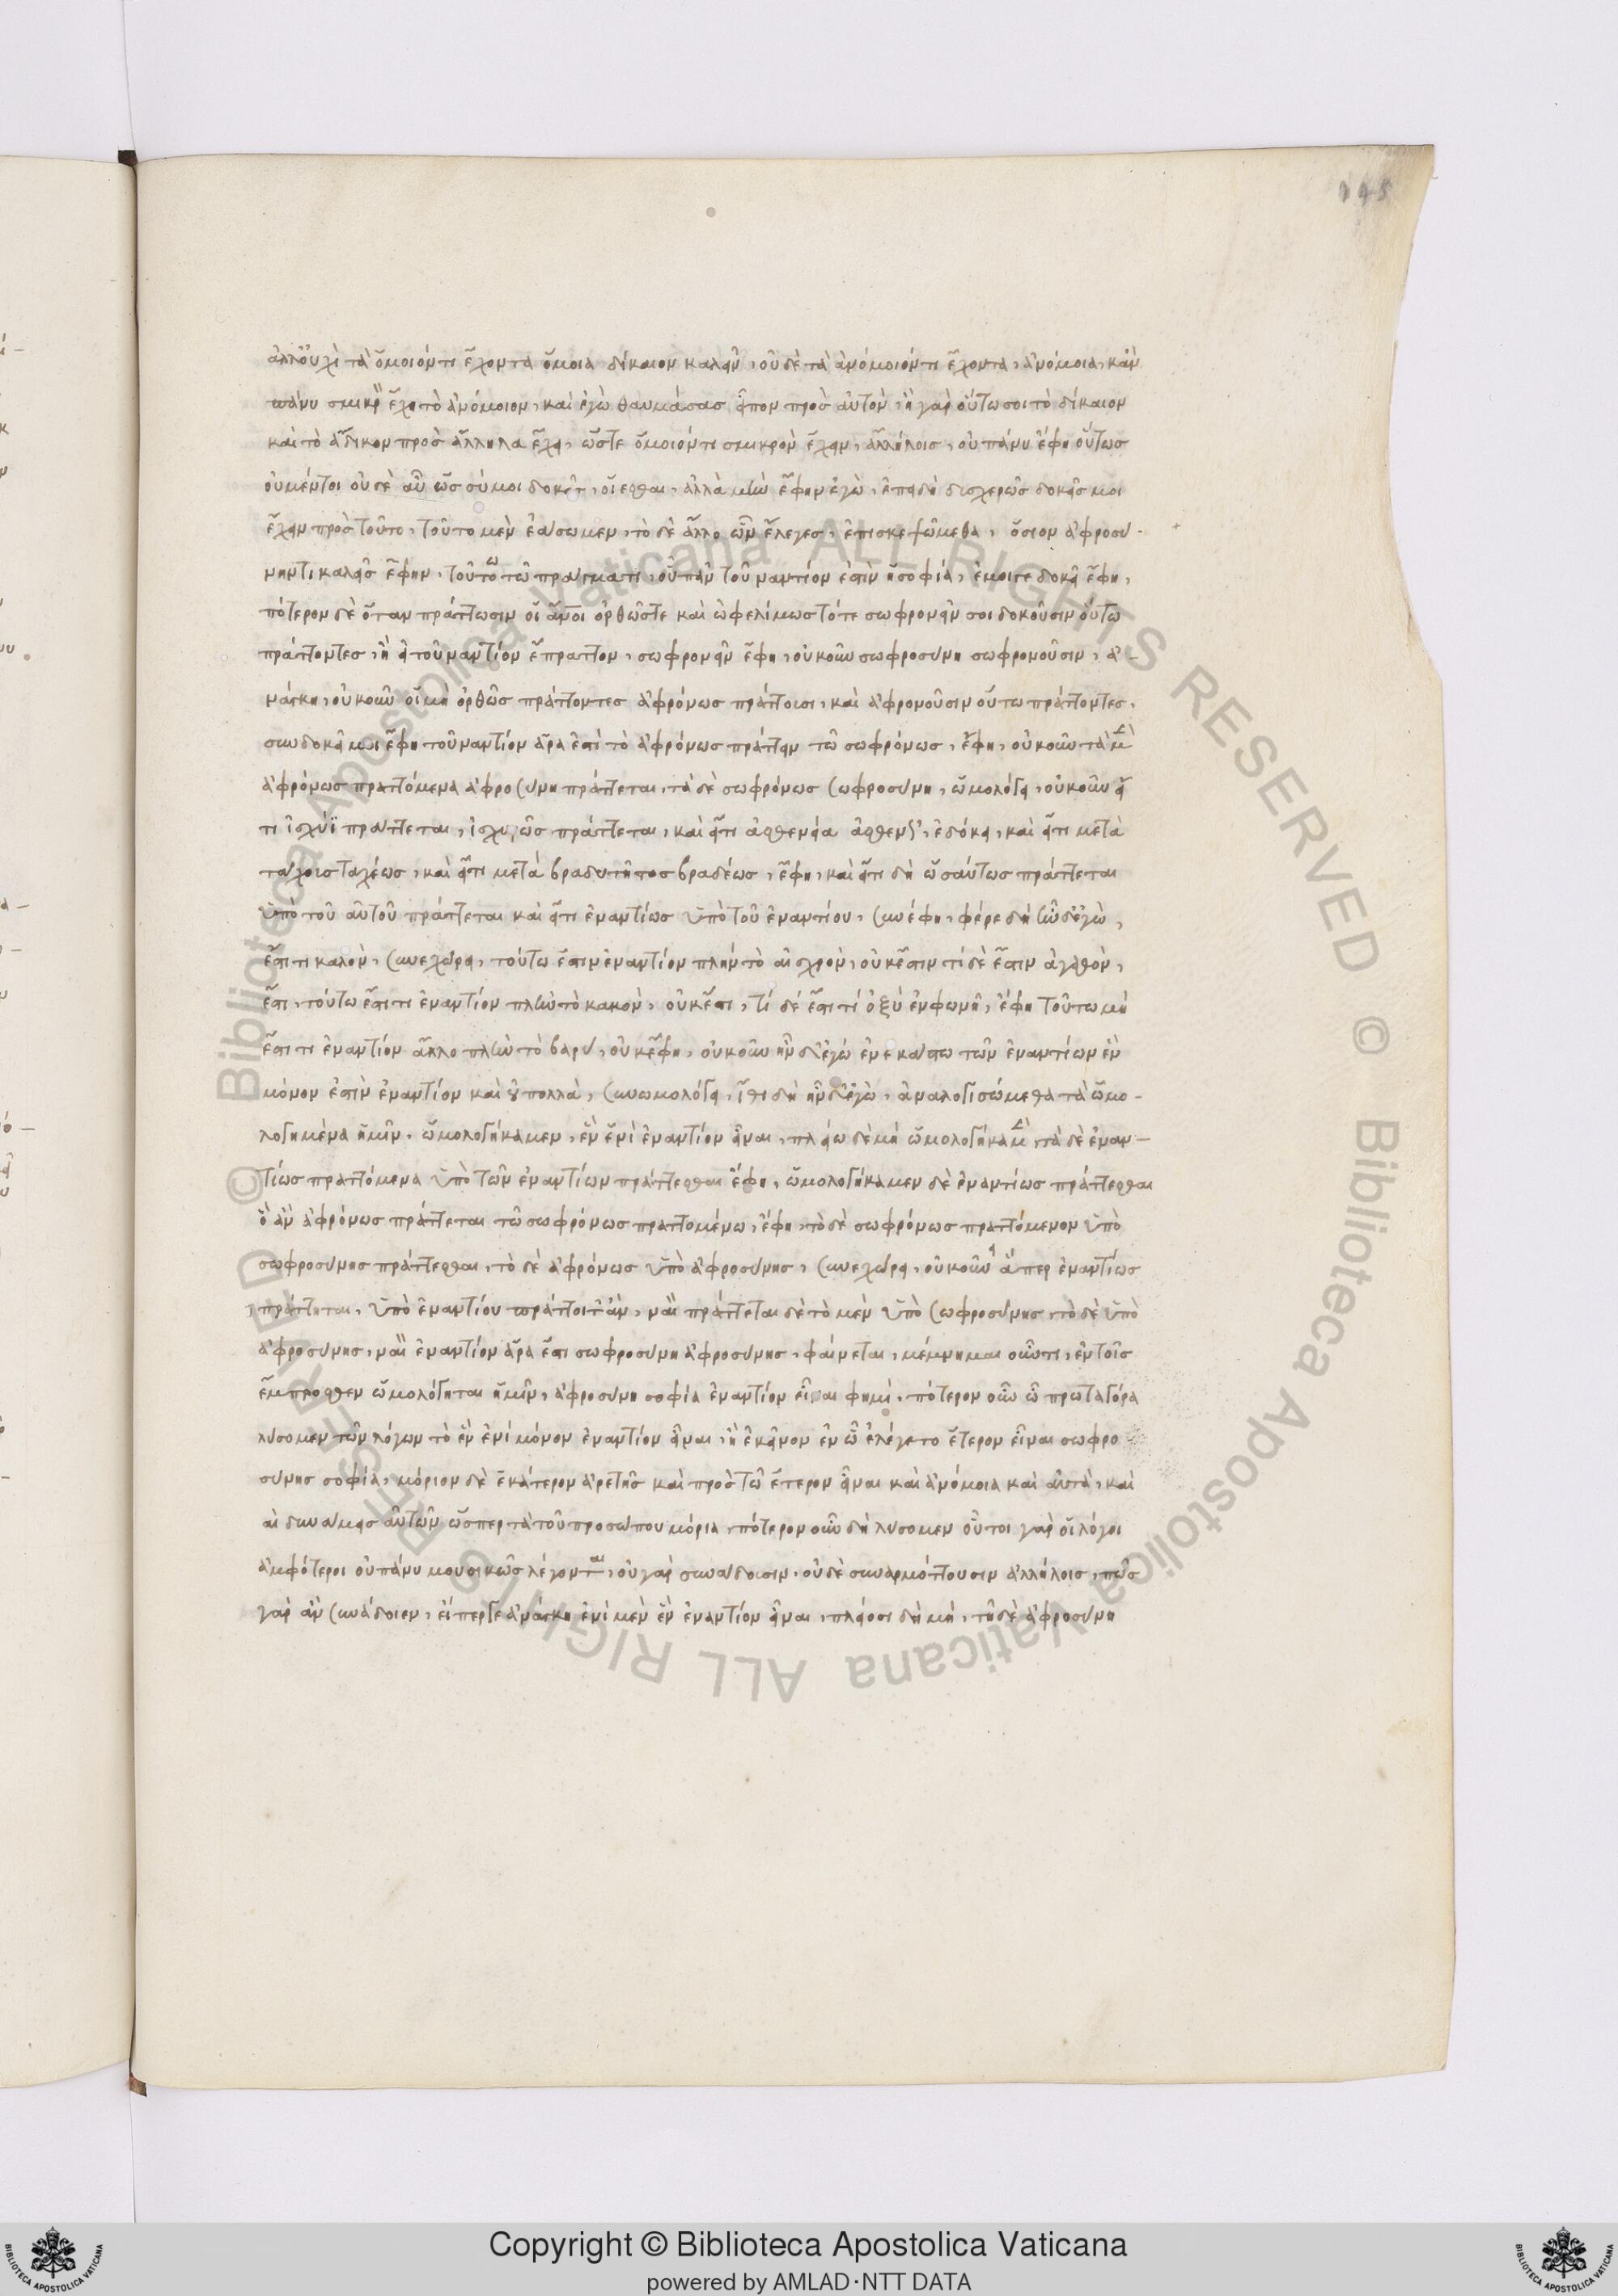 145
ἀλλ' οὐχὶ τὰ ὅμοιόν τι ἔχοντα ὅμοια δίκαιον καλεῖν, οὐδὲ τὰ ἀνόμοιόν τι ἔχοντα, ἀνόμοια, κἂν
πάνυ σμικρὸν ἔχῃ τὸ ἀνόμοιον, καὶ ἐγὼ θαυμάσας εἶπον πρὸς αὐτόν, ἦ γὰρ οὕτω σοι τὸ δίκαιον
καὶ τὸ ἄδικον πρὸς ἄλληλα ἔχει, ὥστε ὅμοιόν τι σμικρὸν ἔχειν, ἀλλήλοις, οὐ πάνυ ἔφη οὕτως
οὐ μέντοι οὐδὲ αὖ ὡς σύ μοι δοκεῖς, οἴεσθαι, ἀλλὰ μὴν ἔφην ἐγώ, ἐπειδὴ δυσχερῶς δοκεῖς μοι
ἔχειν πρὸς τοῦτο, τοῦτο μὲν ἐάσωμεν, τὸ δὲ ἄλλο ὧν ἔλεγες, ἐπισκεψώμεθα, ὅσιον ἀφροσύ-
νην τι καλεῖς ἔφην, τούτω τῶ πράγματι, οὐ πᾶν τοὐναντίον ἐστὶν ἡ σοφία, ἔμοιγε δοκεῖ ἔφη,
πότερον δὲ ὅταν πράττωσιν οἱ ἄνοι ὀρθῶς τε καὶ ὠφελίμως τότε σωφρονεῖν σοι δοκοῦσιν οὕτω
πράττοντες, ἢ εἰ τοὐναντίον ἔπραττον, σωφρονεῖν ἔφη, οὐκοῦν σωφροσύνη σωφρονοῦσιν, ἀ-
νάγκη, οὐκοῦν οἱ μὴ ὀρθῶς πράττοντες ἀφρόνως πράττουσι, καὶ ἀφρονοῦσιν οὕτω πράττοντες,
συνδοκεῖ μοι ἔφη τοὐναντίον ἄρα ἐστὶ τὸ ἀφρόνως πράττειν τῶ σωφρόνως, ἔφη, οὐκοῦν τὰ μὲν
ἀφρόνως πραττόμενα ἀφροσύνη πράττεται, τὰ δὲ σωφρόνως σωφροσύνη, ὡμολόγει, οὐκοῦν εἴ
τι ἰσχύϊ πράττεται, ἰσχυρῶς πράττεται, καὶ εἴ τι ἀσθενείᾳ ἀσθενῶς, ἐδόκει, καὶ εἴ τι μετὰ
τάχους ταχέως, καὶ εἴ τι μετὰ βραδυτῆτος βραδέως, ἔφη, καὶ εἴ τι δὴ ὡσαύτως πράττεται
ὑπὸ τοῦ αὐτοῦ πράττεται καὶ εἴ τι ἐναντίως ὑπὸ τοῦ ἐναντίου, συνέφη, φέρε δὴ ἦν δ' ἐγώ,
ἔστι τι καλὸν, συνεχώρει, τούτω ἔστιν ἐναντίον πλὴν τὸ αἰσχρόν, οὐκ ἔστιν τί δὲ ἔστιν ἀγαθόν,
ἔστι, τούτω ἔστι τι ἐναντίον πλὴν τὸ κακόν, οὐκ ἔστι, τί δὲ ἔστι τί ὀξὺ ἐν φωνῇ, ἔφη τούτω μὴ
ἔστι τι ἐναντίον ἄλλο πλὴν τὸ βαρύ, οὐκ ἔφη, οὐκοῦν ἦν δ' ἐγώ ἑνὶ ἑκάστω τῶν ἐναντίων ἓν
μόνον ἐστὶν ἐναντίον καὶ οὐ πολλὰ, συνωμολόγει, ἴθι δὴ ἦν δ' ἐγώ, ἀναλογισώμεθα τὰ ὡμο-
λογημένα ἡμῖν, ὡμολογήκαμεν, ἓν ἑνὶ ἐναντίον εἶναι, πλείω δὲ μή ὡμολογήκαμεν τὰ δὲ ἐναν-
τίως πραττόμενα ὑπὸ τῶν ἐναντίων πράττεσθαι ἔφη, ὡμολογήκαμεν δὲ ἐναντίως πράττεσθαι
ὃ ἂν ἀφρόνως πράττεται τῶ σωφρόνως πραττομένω, ἔφη, τὸ δὲ σωφρόνως πραττόμενον ὑπὸ
σωφροσύνης πράττεσθαι, τὸ δὲ ἀφρόνως ὑπὸ ἀφροσύνης, συνεχώρει, οὐκοῦν εἴπερ ἐναντίως
πράττηται, ὑπὸ ἐναντίου πράττοιτ' ἂν, ναὶ πράττεται δὲ τὸ μὲν ὑπὸ σωφροσύνης, τὸ δὲ ὑπὸ
ἀφροσύνης, ναὶ ἐναντίον ἄρα ἔστι σωφροσύνη ἀφροσύνης, φαίνεται, μέμνημαι οὖν τι, ἐν τοῖς
ἔμπροσθεν ὡμολόγηται ἡμῖν, ἀφροσύνη σοφία ἐναντίον εἶναι φημὶ, πότερον οὖν ὦ πρωταγόρα
λύσομεν τῶν λόγων τὸ ἓν ἑνὶ μόνον ἐναντίον εἶναι, ἢ ἐκεῖνον ἐν ᾧ ἐλέγετο ἕτερον εἶναι σωφρο
σύνης σοφία, μόριον δὲ ἑκάτερον ἀρετῆς καὶ πρὸς τῶ ἕτερον εἶναι καὶ ἀνόμοια καὶ αὐτὰ, καὶ
αἱ δυνάμεις αὐτῶν ὥσπερ τὰ τοῦ προσώπου μόρια πότερον οὖν δὴ λύσομεν οὗτοι γὰρ οἱ λόγοι
ἀμφότεροι οὐ πάνυ μουσικῶς λέγονται, οὐ γὰρ συνάδουσιν, οὐδὲ συναρμόττουσιν ἀλλήλοις, πῶς
γὰρ ἂν συνάδοιεν, εἴπερ γε ἀνάγκη ἑνὶ μὲν ἓν ἐναντίον εἶναι, πλείοσι δὴ μή, τῇ δὲ ἀφροσύνη
Copyright © Biblioteca Apostolica Vaticana
powered by AMLAD·NTT DATA